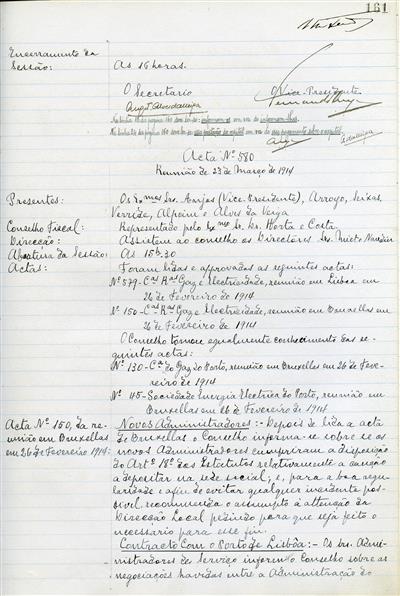 161
Encerramento da
Sessão: As 16 horas.
O Secretario O Vice-Presidente
Acta Nº 580
Reunião de 23 de Março de 1914
Presentes: Os Exmos Srs. Anjos (Vice-Presidente), Arroyo, Seixas,
Verride, Alpoim e Alves da Veiga
Conselho Fiscal: Representado pelo Exmo Sr. Dr. Horta e Costa
Direcção: Assistem ao conselho os Directores Srs.
Abertura da Sessão: As 15h.30
Actas: Foram lidas e approvadas as seguintes actas:
Nº 579-Cas Ras Gaz e Electricidade, reunião em Lisboa em
26 de Fevereiro de 1914
Nº 150-Cas Ras Gaz e Electricidade, reunião em Bruxellas em
26 de Fevereiro de 1914
O Conselho tomou egualmente conhecimento das se-
guintes actas:
Nº 130-Ca do Gaz do Porto, reunião em Bruxellas em 26 de Feve-
reiro de 1914
Nº 45-Sociedade Energia Electrica do Porto, reunião em
Bruxellas em 26 de Fevereiro de 1914
Acta Nº 150, da re- Novos Administradores:- Depois de lida a acta
união em Bruxellas de Bruxellas o Conselho informa-se sobre se os
em 26 de Fevereiro 1914: novos Administradores cumpriram a disposição
do Artº 18º dos Estatutos relativamente a caução
a depositar na sede social, e, para a boa regu-
laridade e afim de evitar qualquer incidente pos-
sivel, recommenda o assumpto á attenção da
Direcção Local pedindo para que seja feito o
necessario para esse fim.
Contracto Com o Porto de Lisbôa:- Os Srs. Admi-
nistradores de Serviço informam o Conselho sobre as
negociações havidas entre a Administração do